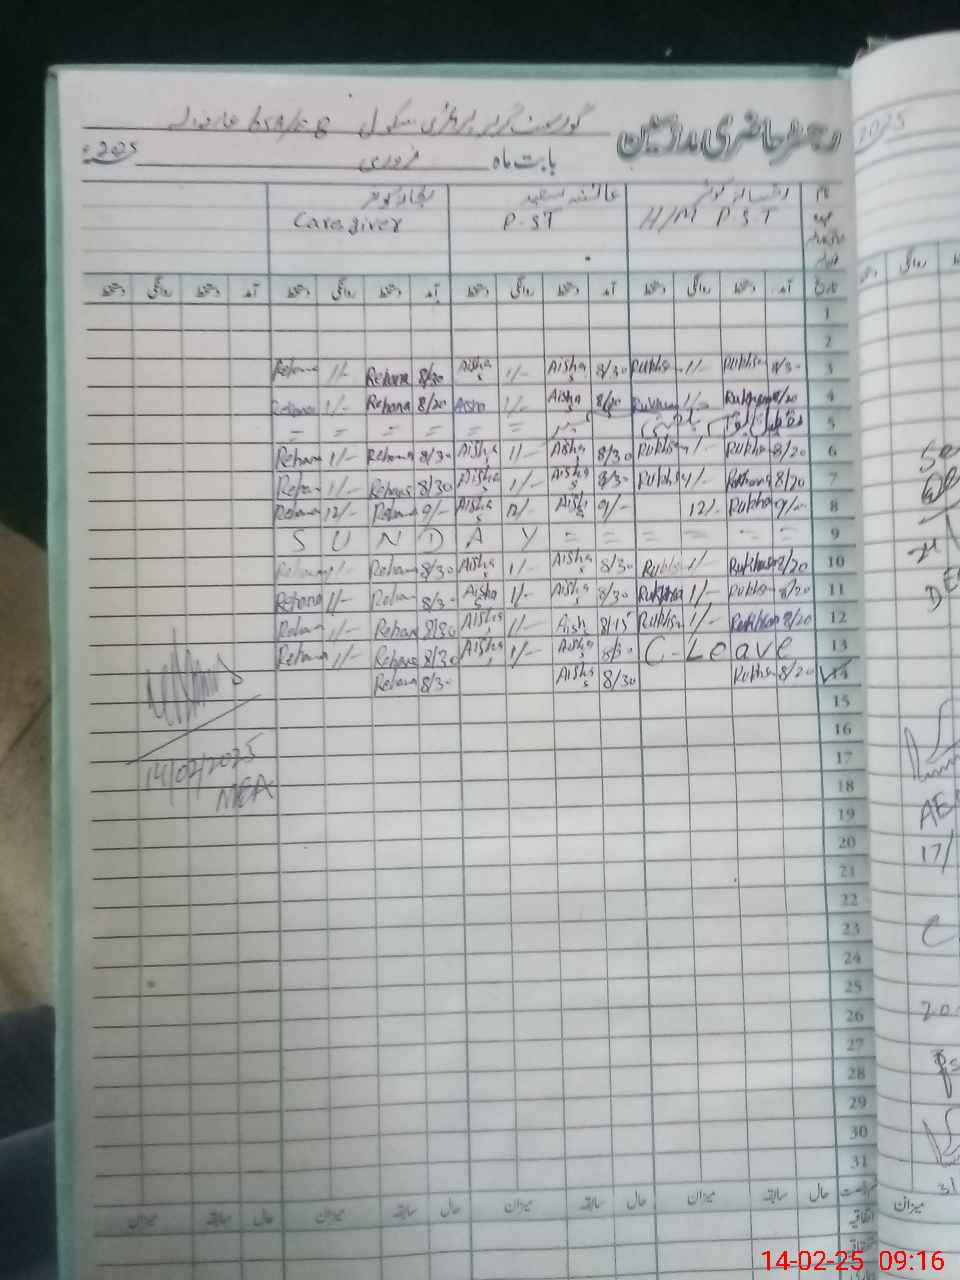 رجسٹر حاضری مدرسین گورنمنٹ گرلز پرائمری سکول
بابت ماہ فروری 2025ء
عائشہ سعید
H/M P S T P.ST Caregiver
تاریخ آمد دستخط روانگی دستخط آمد دستخط روانگی دستخط آمد دستخط روانگی دستخط آمد دستخط روانگی دستخط
1
2
3 8/30 Rukhs 1/- Rukhs 8/30 Aisha S 1/- Aisha S 8/30 Rehana 1/- Rehana
4 8/20 Rukhsan 1/- Rukhsan 8/20 Aisha S 1/- Aisha 8/20 Rehana 1/- Rehana
5 = = = = = =
6 8/20 Rukhs 1/- Rukhs 8/30 Aisha S 1/- Aisha S 8/30 Rehana 1/- Rehana
7 8/20 Rukhsana 1/- Rukhs 8/30 Aisha S 1/- Aisha S 8/30 Rehana 1/- Rehan
8 9/- Rukhs 12/- 9/- Aisha S 12/- Aisha S 9/- Rehana 12/- Rehana
9 S U N D A Y = = = = = =
10 8/20 Rukhsan 1/- Rukhs 8/30 Aisha S 1/- Aisha S 8/30 Rehana 1/- Rehana
11 8/20 Rukhs 1/- Rukhsa 8/30 Aisha S 1/- Aisha S 8/30 Rehana 1/- Rehana
12 8/20 Rukhsan 1/- Rukhs 8/15 Aisha S 1/- Aisha S 8/30 Rehana 1/- Rehana
13 C-Leave 8/30 Aisha S 1/- Aisha 8/30 Rehana 1/- Rehana
14 8/20 Rukhs 8/30 Aisha S 8/30 Rehana
15
14/02/2025
16
MEA
17
18
19
20
21
22
23
24
25
26
27
28
29
30
31
حال سابقہ میزان حال سابقہ میزان حال سابقہ میزان حال سابقہ میزان
اتفاقیہ
2025
روانگی
17/
31
میزان
14-02-25 09:16